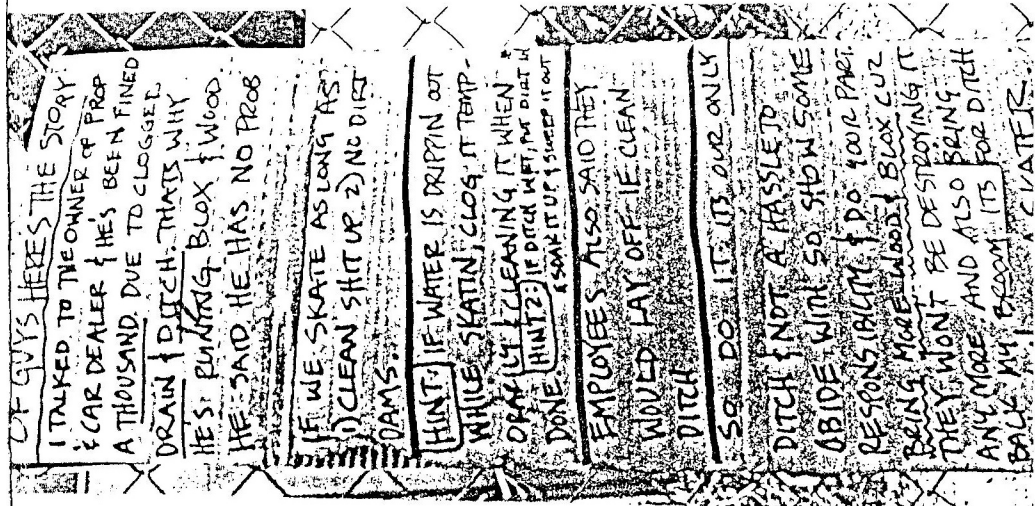 OF GUYS HERES THE STORY
I TALKED TO THE OWNER OF PROP
& CAR DEALER & HE'S BEEN FINED
A THOUSAND DUE TO CLOGGED
DRAIN & DITCH. THATS WHY
HE'S RUNING BLOX & WOOD.
HE SAID HE HAS NO PROB
IF WE SKATE AS LONG AS
1) CLEAN SHIT UP 2) NO DIRT
DAMS.
HINT: IF WATER IS DRIPPIN OUT
WHILE SKATIN, CLOG IT TEMP-
ORARILY & CLEANING IT WHEN
DONE. HINT 2: IF DITCH WET, PUT DIRT IN
& SOAK IT UP & SWEEP IT OUT
EMPLOYEES ALSO SAID THEY
WOULD LAY OFF IF CLEAN
DITCH
SO DO IT. ITS OUR ONLY
DITCH & NOT A HASSLE TO
ABIDE WITH SO SHOW SOME
RESPONSIBLITY & DO YOUR PART.
BRING MORE WOOD & BLOX CUZ
THEY WON'T BE DESTROYING IT
ANY MORE AND ALSO BRING
BACK MY BROOM ITS FOR DITCH
LATER.